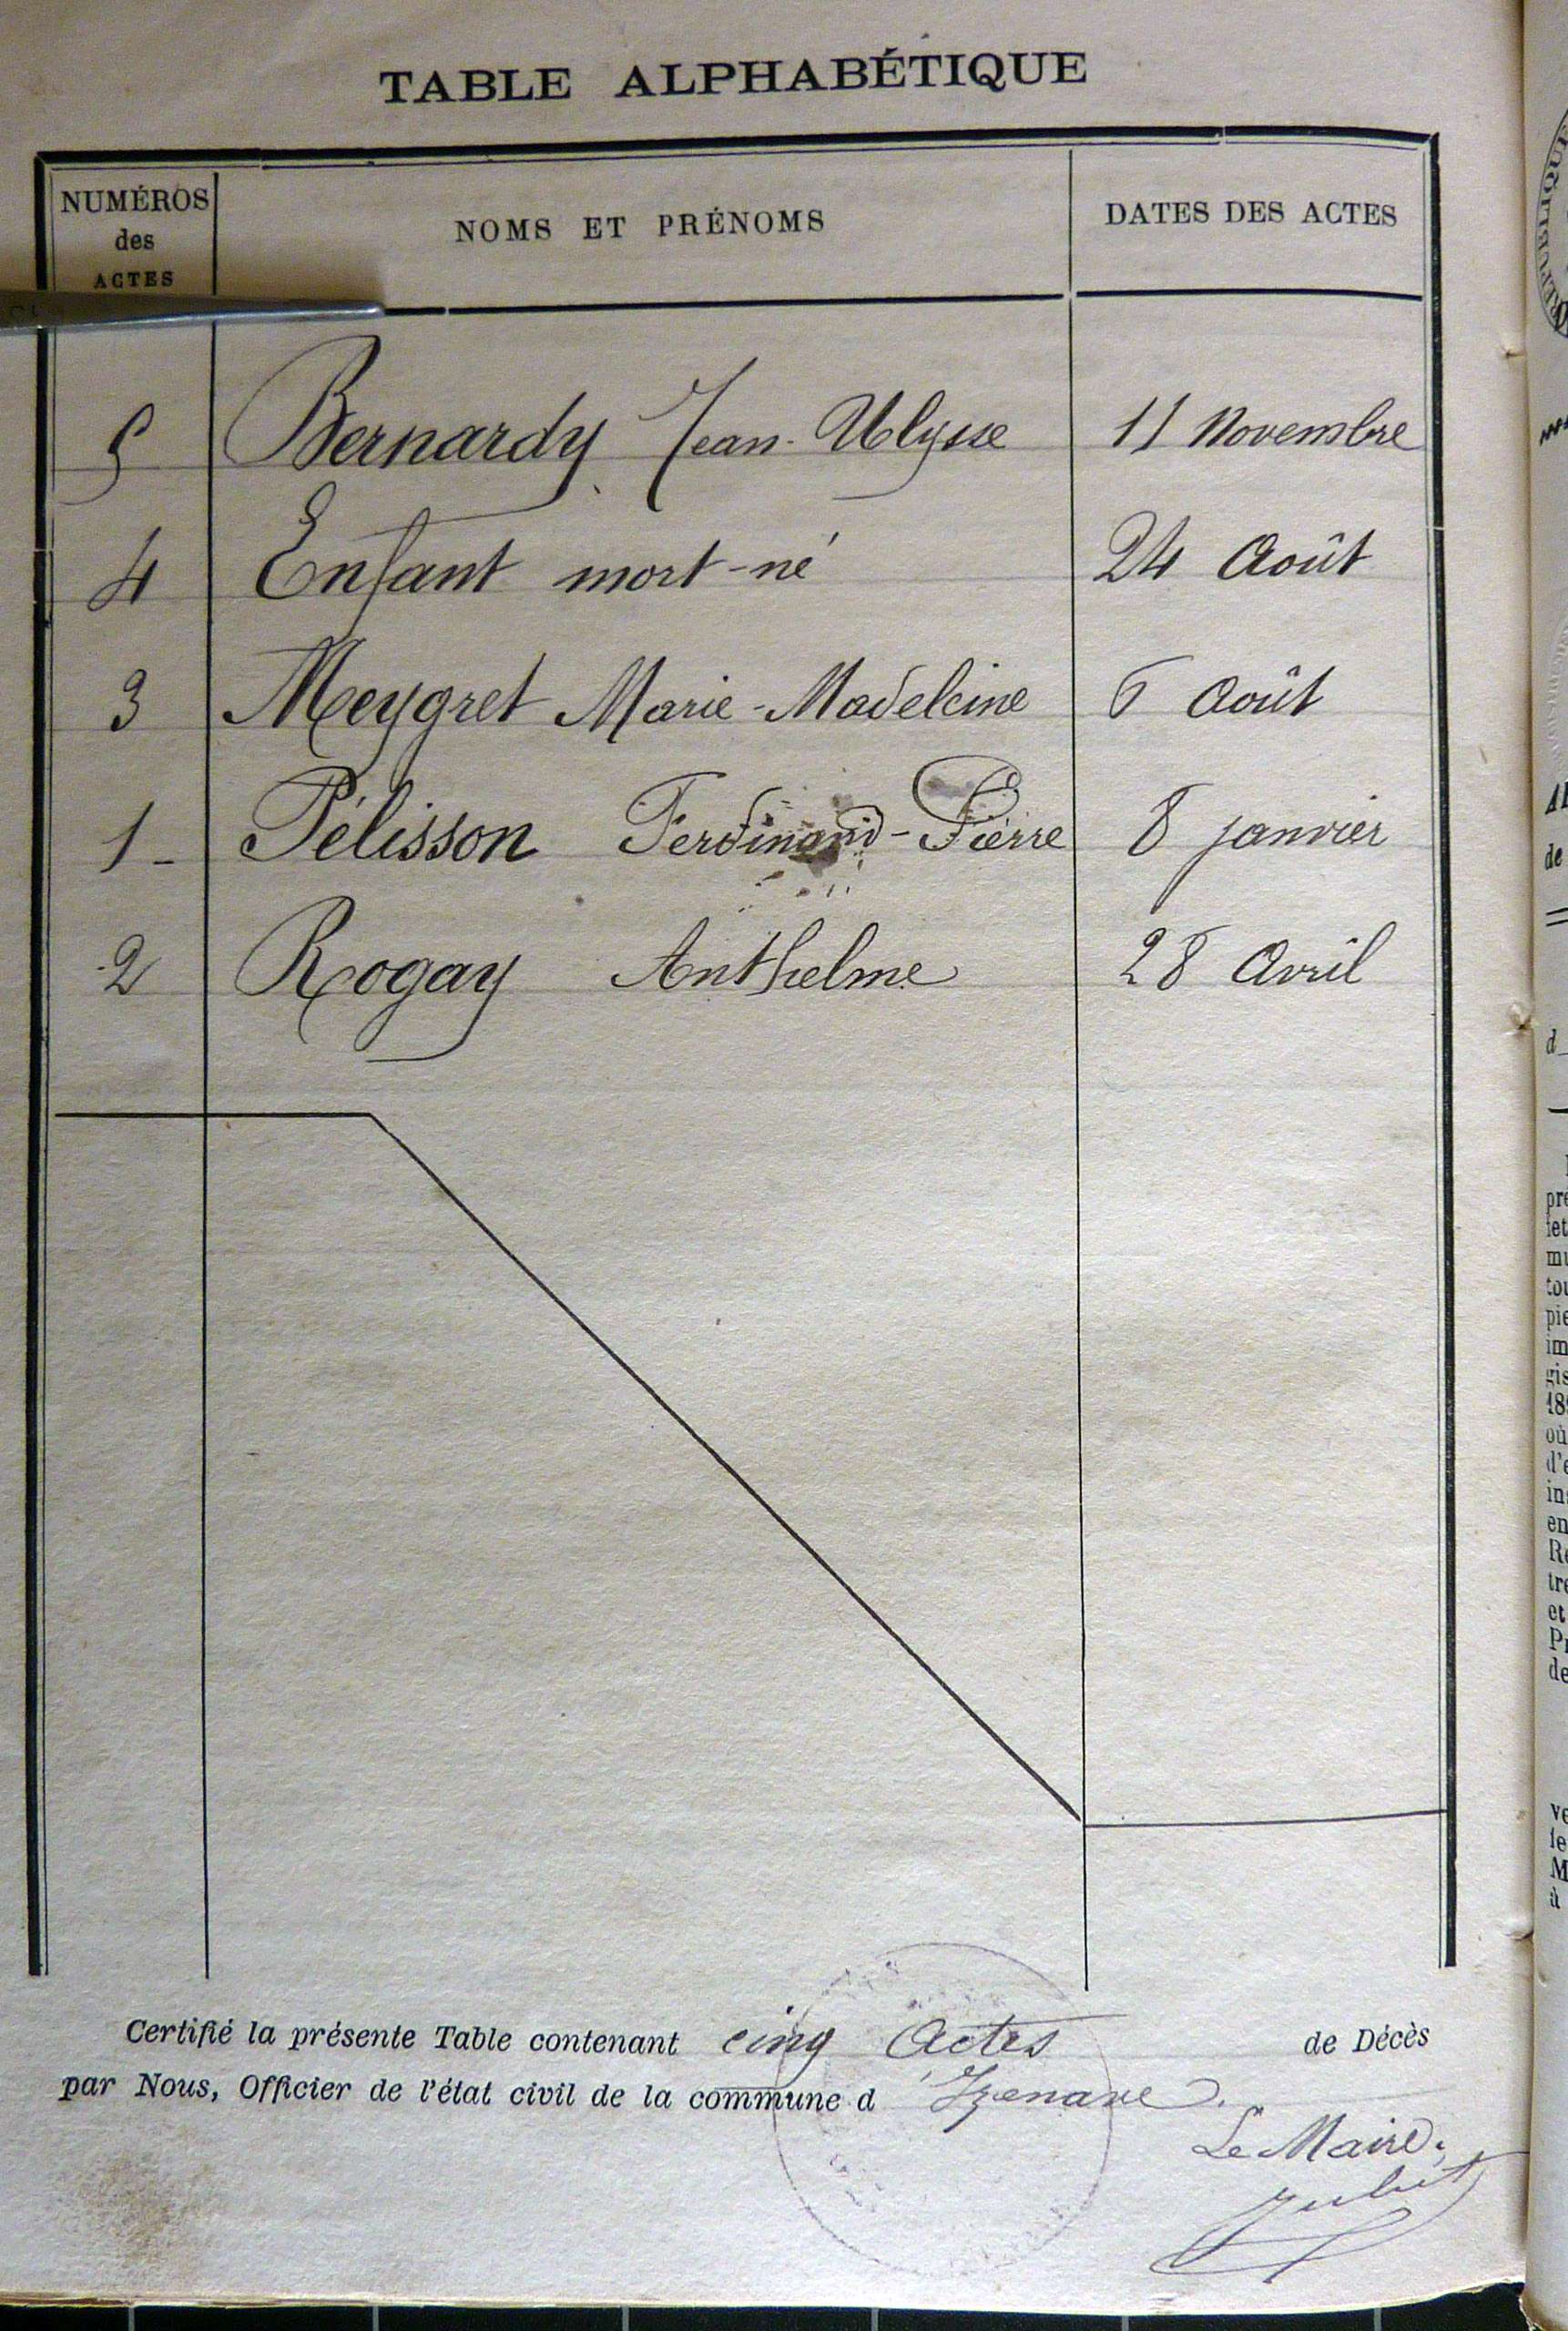 TABLE ALPHABÉTIQUE
NUMÉROS
des
ACTES
NOMS ET PRÉNOMS
DATES DES ACTES
5 Bernardy Jean-Ulysse 11 Novembre
4 Enfant mort-né 24 Août
3 Meygret Marie-Madeleine 6 Août
1 - Pélisson Ferdinand-Pierre 8 janvier
2 Rogay Anthelme 28 Avril
Certifié la présente Table contenant cinq Actes de Décès
par Nous, Officier de l'état civil de la commune d'Izenave.
Le Maire,